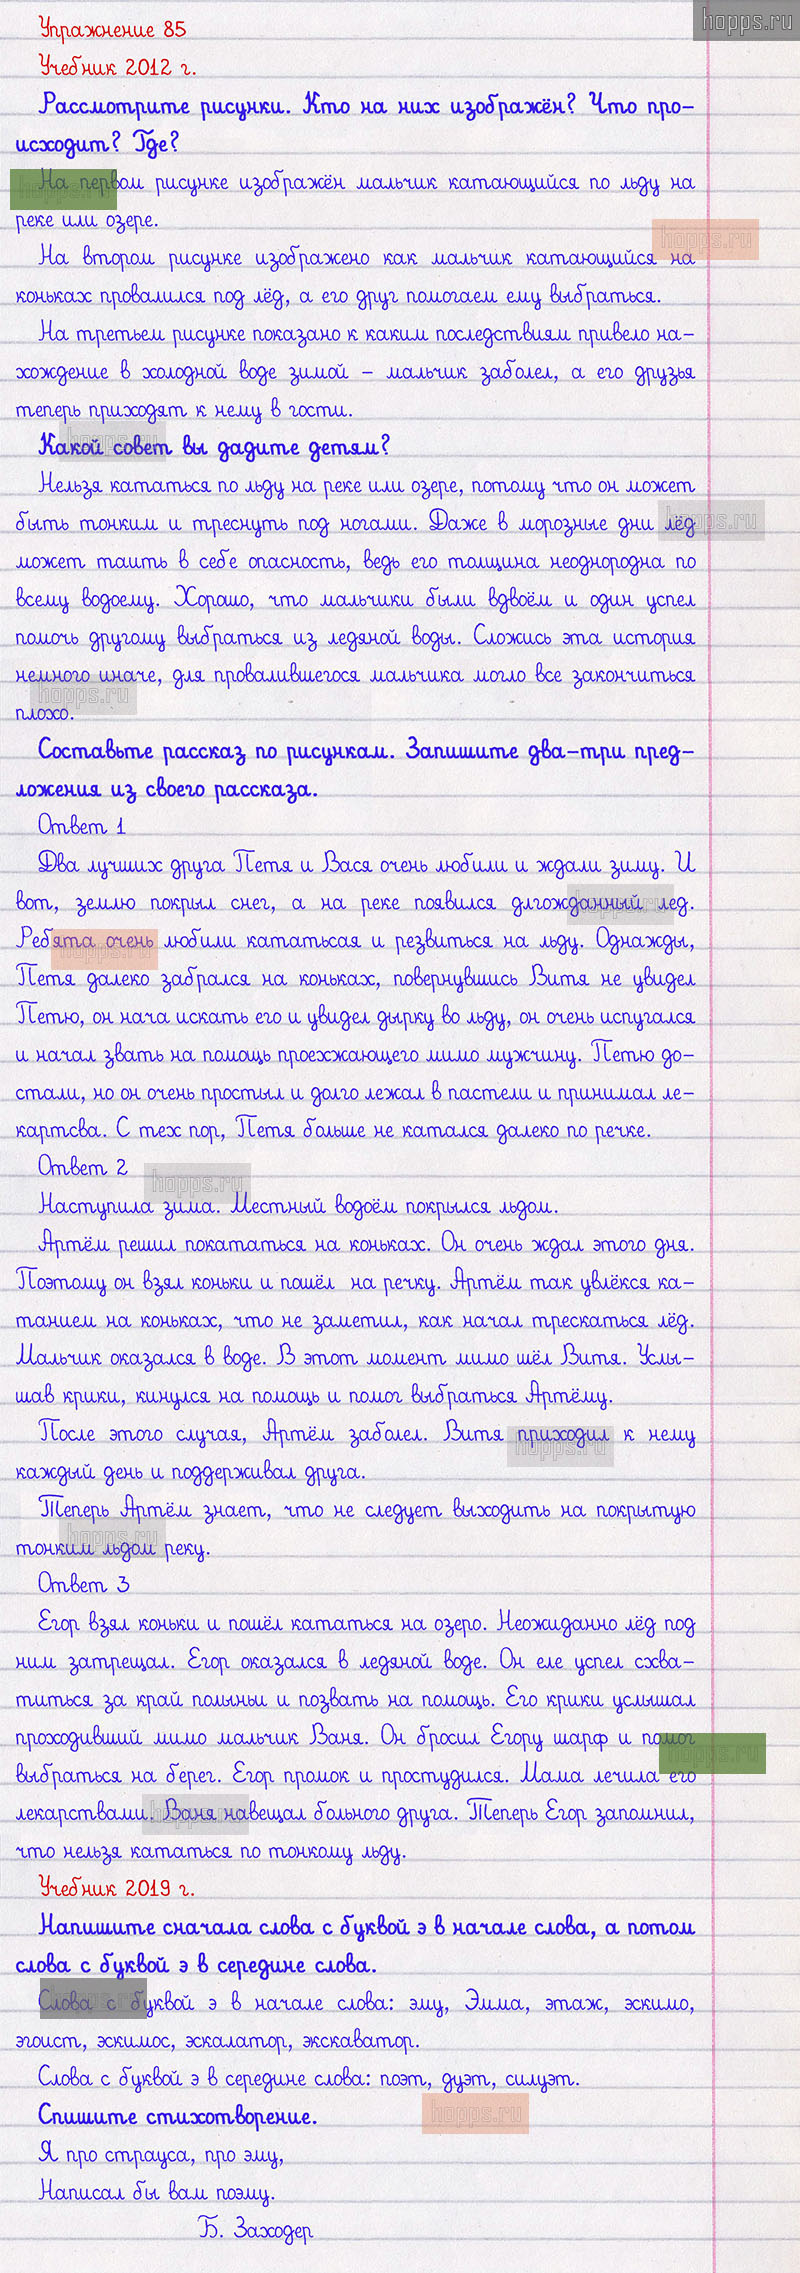 hopps.ru
Упражнение 85
Учебник 2012 г.
Рассмотрите рисунки. Кто на них изображён? Что про-
исходит? Где?
На первом рисунке изображён мальчик катающийся по льду на
hopps.ru
реке или озере.
hopps.ru
На втором рисунке изображено как мальчик катающийся на
коньках провалился под лёд, а его друг помогаем ему выбраться.
На третьем рисунке показано к каким последствиям привело на-
хождение в холодной воде зимой – мальчик заболел, а его друзья
теперь приходят к нему в гости.
Какой совет вы дадите детям?
hopps.ru
Нельзя кататься по льду на реке или озере, потому что он может
быть тонким и треснуть под ногами. Даже в морозные дни лёд
hopps.ru
может таить в себе опасность, ведь его толщина неоднородна по
всему водоему. Хорошо, что мальчики были вдвоём и один успел
помочь другому выбраться из ледяной воды. Сложись эта история
немного иначе, для провалившегося мальчика могло все закончиться
hopps.ru
плохо.
Составьте рассказ по рисункам. Запишите два-три пред-
ложения из своего рассказа.
Ответ 1
Два лучших друга Петя и Вася очень любили и ждали зиму. И
вот, землю покрыл снег, а на реке появился длгожданный лед.
hopps.ru
Ребята очень любили кататьсая и резвиться на льду. Однажды,
hopps.ru
Петя далеко забрался на коньках, повернувшись Витя не увидел
Петю, он нача искать его и увидел дырку во льду, он очень испугался
и начал звать на помощь проехжающего мимо мужчину. Петю до-
стали, но он очень простыл и долго лежал в пастели и принимал ле-
картсва. С тех пор, Петя больше не катался далеко по речке.
Ответ 2
hopps.ru
Наступила зима. Местный водоём покрылся льдом.
Артём решил покататься на коньках. Он очень ждал этого дня.
Поэтому он взял коньки и пошёл на речку. Артём так увлёкся ка-
танием на коньках, что не заметил, как начал трескаться лёд.
Мальчик оказался в воде. В этот момент мимо шёл Витя. Услы-
шав крики, кинулся на помощь и помог выбраться Артёму.
После этого случая, Артём заболел. Витя приходил к нему
hopps.ru
каждый день и поддерживал друга.
Теперь Артём знает, что не следует выходить на покрытую
hopps.ru
тонким льдом реку.
Ответ 3
Егор взял коньки и пошёл кататься на озеро. Неожиданно лёд под
ним затрещал. Егор оказался в ледяной воде. Он еле успел схва-
титься за край полыньи и позвать на помощь. Его крики услышал
проходивший мимо мальчик Ваня. Он бросил Егору шарф и помог
hopps.ru
выбраться на берег. Егор промок и простудился. Мама лечила его
лекарствами. Ваня навещал больного друга. Теперь Егор запомнил,
hopps.ru
что нельзя кататься по тонкому льду.
Учебник 2019 г.
Напишите сначала слова с буквой э в начале слова, а потом
слова с буквой э в середине слова.
Слова с буквой э в начале слова: эму, Эмма, этаж, эскимо,
hopps.ru
эгоист, эскимос, эскалатор, экскаватор.
Слова с буквой э в середине слова: поэт, дуэт, силуэт.
Спишите стихотворение.
hopps.ru
Я про страуса, про эму,
Написал бы вам поэму.
Б. Заходер